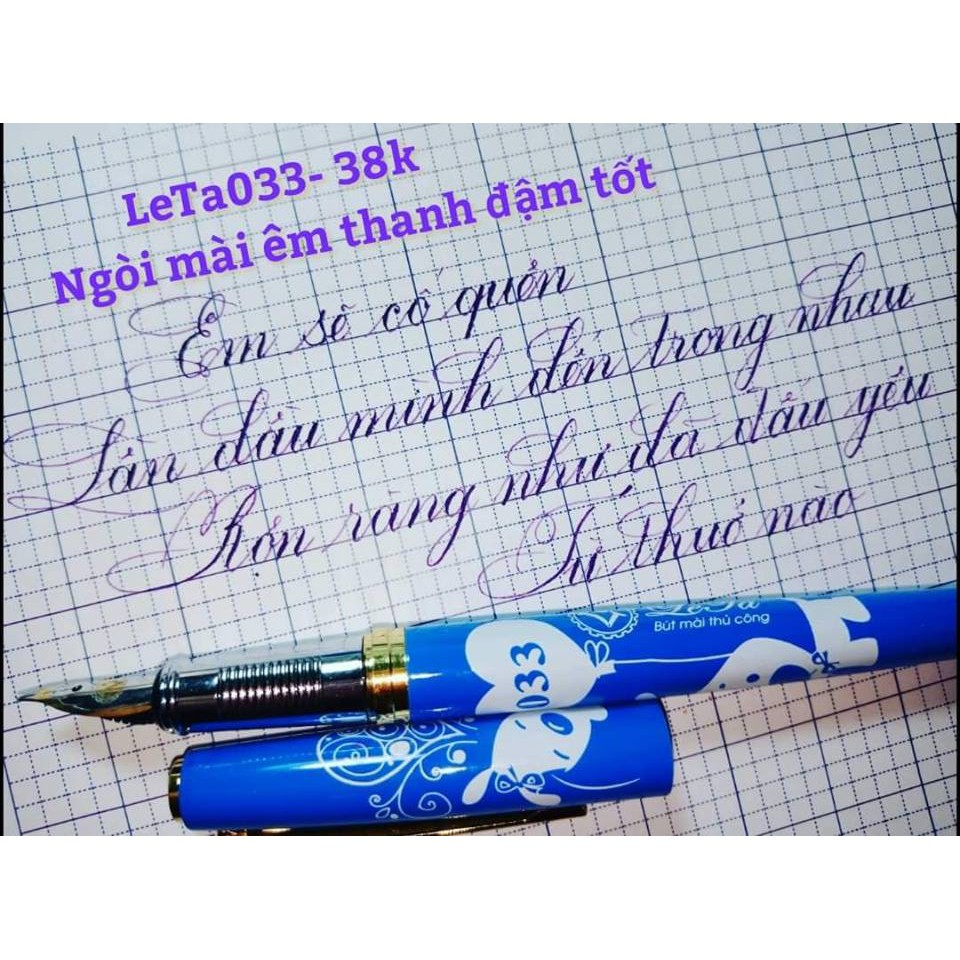 LeTa033- 38k
Ngòi mài êm thanh đậm tốt
Em sẽ cố quên
Lần đầu mình đến trong nhau
Rộn ràng như đã dấu yêu
Từ thuở nào
LeTa
Bút mài thủ công
033